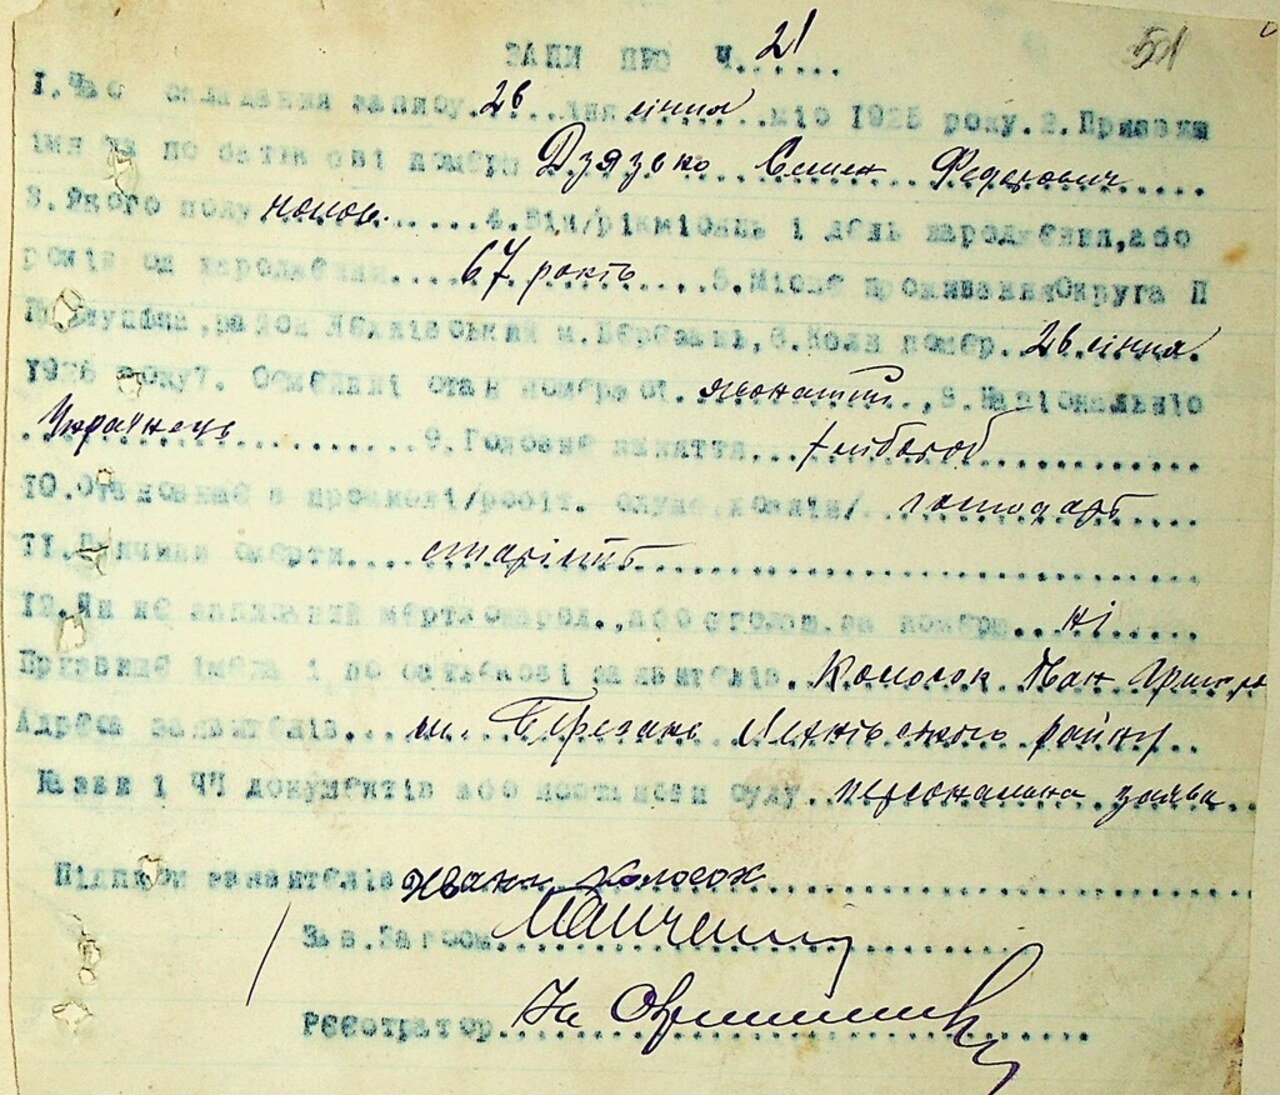 ЗАПИ ПРО Ч. 21 51
1. Час складання запису 26 дня січня міс 1926 року. 2. Призвищ
імя та по батькові померш Дзязько Семен Федорович
3. Якого полу чолов. 4. Вік/рік місяць і день народження, або
років од народження 67 років 5. Місце проживання Округа П
район Яхнівський м. Березань, 6. Коли помер. 26 січня
1926 року 7. Семейний стан помершої. жонатий, 8. Національніс
Українець 9. Головне заняття хлібороб
10. Становище в промислі/робіт. служ. господарь
11. Причина смерти старість
12. Як не записаний мертвонарод., або оголош. за померш ні
Призвище імена і по батькові заявителів. Колосок Іван Григоро
Адреса заявителів м. Березань Яхнівського району
Назви і ЧЧ документів або постанови суду персональна заява
Підписи заявителів Иван Колосок
Зав. Загсом
Реєстратор